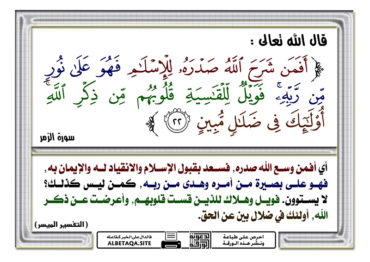 قال الله تعالى :
﴿ أَفَمَن شَرَحَ ٱللَّهُ صَدْرَهُۥ لِلْإِسْلَٰمِ فَهُوَ عَلَىٰ نُورٍ
مِّن رَّبِّهِۦ ۚ فَوَيْلٌ لِّلْقَٰسِيَةِ قُلُوبُهُم مِّن ذِكْرِ ٱللَّهِ ۚ
أُو۟لَٰٓئِكَ فِى ضَلَٰلٍ مُّبِينٍ ٢٢ ﴾
سورة الزمر
أي أفمن وسع الله صدره، فسعد بقبول الإسلام والانقياد له والإيمان به،
فهو على بصيرة من أمره وهدى من ربه، كمن ليس كذلك؟
لا يستوون. فويل وهلاك للذين قست قلوبهم، وأعرضت عن ذكر
الله، أولئك في ضلال بين عن الحق.
(التفسير الميسر)
احرص على طباعة
ونشر هذه الورقة
فالدال على الخير كفاعله
ALBETAQA.SITE